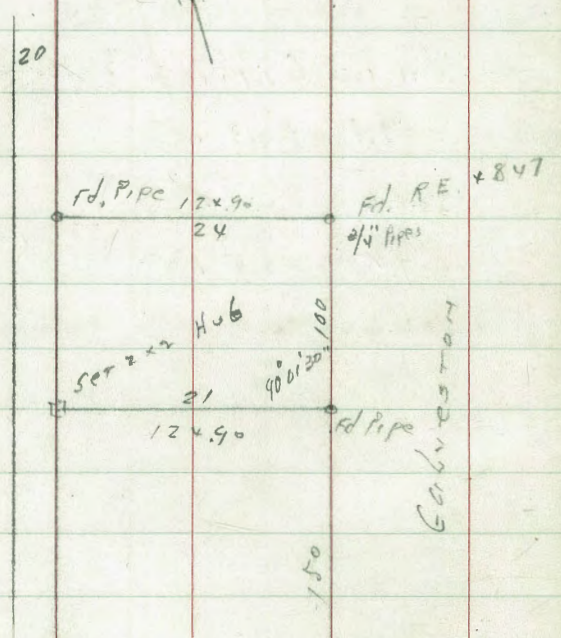 20
Fd. Pipe
124.90
24
Fd. R.E. +847
3/4" Pipes
Set 2x2 Hub
100
90°01'30"
21
124.90
Fd Pipe
Galveston
150